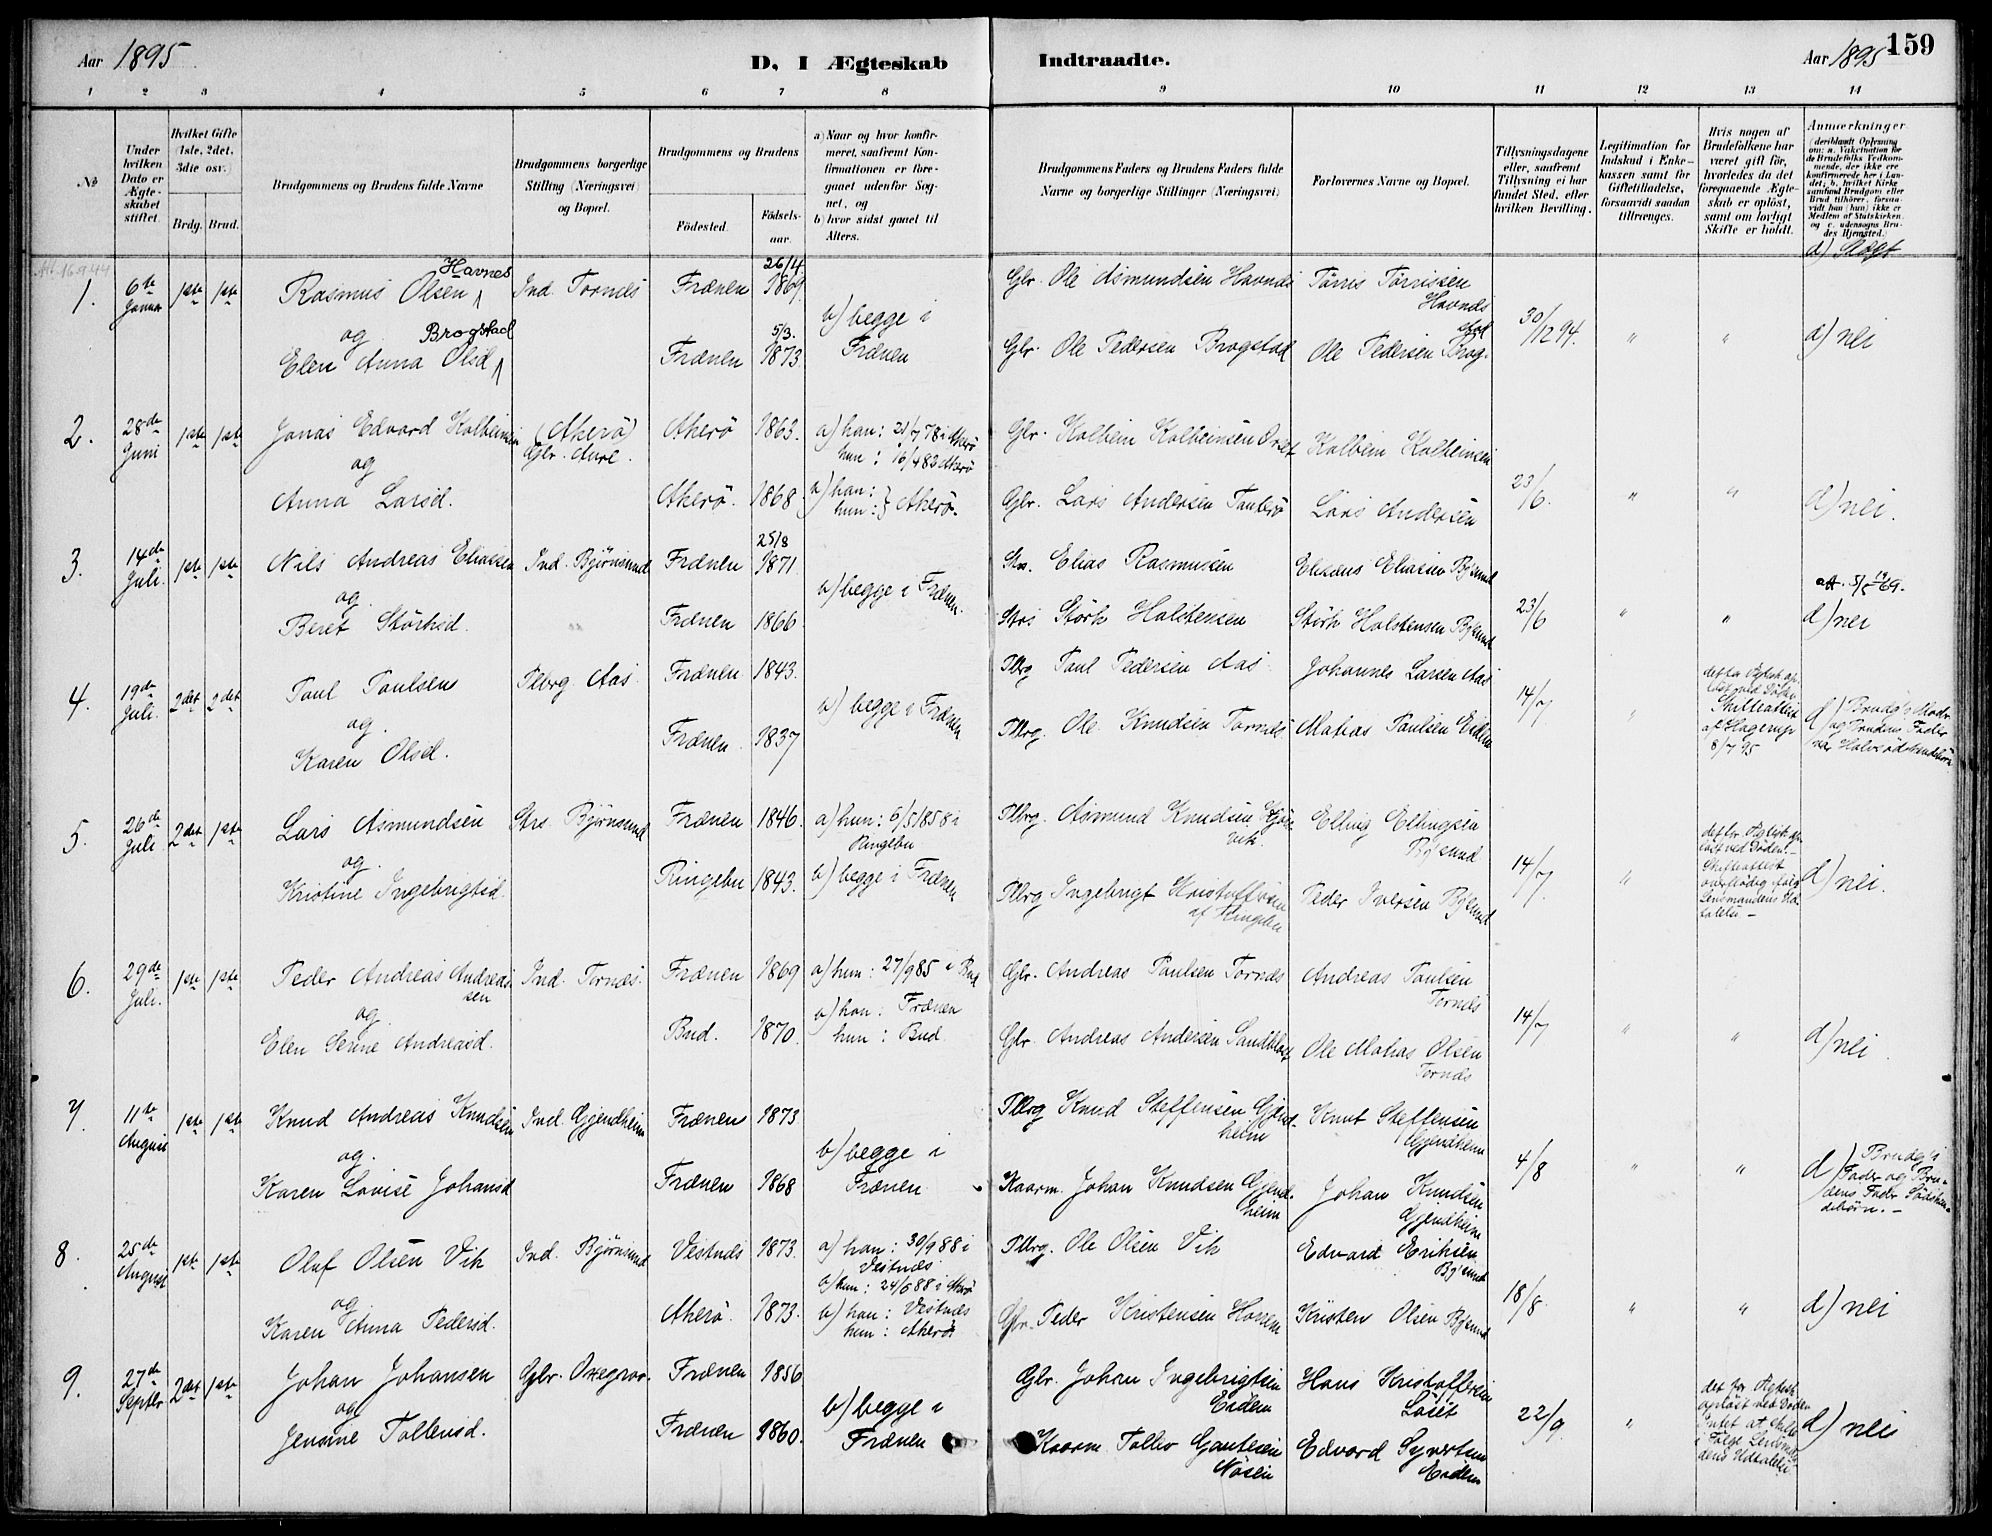 Aar 1895
D. I Ægteskab Indtraadte.
Aar 1895
159
1 2 3 4 5 6 7 8 9 10 11 12 13 14
№
Under hvilken Dato er Ægteskabet stiftet.
Hvilket Gifte (1ste, 2det, 3die osv.)
Brdg. Brud.
Brudgommens og Brudens fulde Navne
Brudgommens borgerlige Stilling (Næringsvei) og Bopæl.
Brudgommens og Brudens
Födested.
Födsels-aar.
a) Naar og hvor konfirmeret, saafremt Konfirmationen er foregaaet udenfor Sognet, og
b) hvor sidst gaaet til Alters.
Brudgommens Faders og Brudens Faders fulde Navne og borgerlige Stillinger (Næringsvei)
Forlovernes Navne og Bopæl.
Tillysningsdagene eller, saafremt Tillysning ei har fundet Sted, efter hvilken Bevilling.
Legitimation for Indskud i Enkekassen samt for Giftetilladelse, forsaavidt saadan tiltrænges.
Hvis nogen af Brudefolkene har været gift för, hvorledes da det foregaaende Ægteskab er oplöst, samt om lovligt Skifte er holdt.
Anmerkninger (deriblandt Oplysning om: a. Vakcination for de Brudefolks Vedkommende, der ikke ere konfirmerede her i Landet; b. hvilket Kirkesamfund Brudgom eller Brud tilhörer, forsaavidt han (hun) ikke er Medlem af Statskirken, og c. udensogns Brudes Hjemsted.)
d) Slægt
Att. 16.9.44
1. 6te Januar 1ste 1ste
Rasmus Olsen Havnes
og
Elen Anna Olsd Brogstad
Ind. Tornes
Frænen 26/4 1869
Frænen 5/3. 1873
b) begge i Frænen
Gbr. Ole Asmundsen Havnes
Gbr. Ole Pedersen Brogstad
Tørris Tørrissen Havnes
Ole Pedersen Brogstad
30/12 94.
" "
d) nei
2. 28de Juni 1ste 1ste
Jonas Edvard Kolbeinsen
og
Anna Larsd.
(Akerö) Gbr. Aure.
Akerö 1863.
Akerö. 1868
a) han: 21/7 78 i Akerö
hun: 16/4 83 Akerö
b) han: hun: } Akerö.
Gbr. Kolbein Kolbeinsen
Gbr. Lars Andersen Tauterö
Kolbein Kolbeinsen
Lars Andersen
23/6.
" "
d) nei.
3. 14de Juli. 1ste 1ste
Nils Andreas Eliassen
og
Beret Störksd.
Ind. Björnsund
Frænen 25/8 1871
Frænen 1866
b) begge i Frænen.
Elias Rasmussen
Strs Störk Halstensen
Eliasen Bj'sund
Störk Halstensen Bj'sund
23/6
" "
att. 5/5 1969.
d) nei
4. 19de Juli. 2det 2det
Paul Paulsen
og
Karen Olsd.
Plbrg Aas
Frænen 1843.
Frænen 1837
b) begge i Frænen
Plbrg Paul Pedersen Aas
Plbrg. Ole Knudsen Tornes
Johannes Larsen Aas
Matias Paulsen Eidem
14/7
"
Skifteattest af
8/7 95
d) Brudg's Moder og Brudens Fader
5. 26de Juli 2det 1ste
Lars Asmundsen
og
Kristine Ingebrigtsd.
Strs. Björnsund
Frænen 1846.
Ringebu 1843.
a) hun: 6/5 1858 i Ringebu
b) begge i Frænen
Plbrg. Asmund Knudsen
Plbrg Ingebrigt Kristoffersen af Ringebu
Elling Ellingsen Bj'sund
Peder Iversen Bj'sund
14/7.
"
det för Ægtesk. oplöst ved Döden. – Skifteattest overflödig ifölge Lensmandens Udtalelse. –
d) nei.
6. 29de Juli. 1ste 1ste
Peder Andreas Andreassen
og
Elen Serine Andreasd.
Ind. Tornes.
Frænen 1869
Bud. 1870.
a) hun: 27/9 85 i Bud
b) han: Frænen
hun: Bud.
Gbr. Andreas Paulsen Tornes
Gbr. Andreas Andersen Sandblaast
Andreas Paulsen Tornes
Ole Matias Olsen Tornes
14/7
" "
d) nei.
7. 11te August 1ste 1ste
Knud Andreas Knudsen
og.
Karen Lovise Johansd
Ind. Gjendheim
Frænen 1873
Frænen 1868
b) begge i Frænen
Plbrg Knud Steffensen Gjendheim
Kaarm. Johan Knudsen Gjendheim
Knut Steffensen Gjendhem
Johan Knudsen Gjendheim
4/8
" "
d) Brudg's Fader og Brudens Fader Södskendebörn. –
8. 25de August 1ste 1ste
Oluf Olsen Vik
og
Karen Anna Pedersd.
Ind. Björnsund
Vestnes 1873.
Akerö. 1873.
a) han: 30/9 88 i Vestnes
a) hun: 24/6 88 i Akerö
b) han: Vestnes
hun: Akerö
Plbrg. Ole Olsen Vik
Gbr. Peder Kristensen
Edvard Eriksen Bj'sund
Kristen Olsen Bj'sund
18/8.
" "
d) nei
9. 27de Septbr 2det 1ste
Johan Johansen
og
Jensine Tollevsd.
Gbr.
Frænen 1856
Frænen 1860.
b) begge i Frænen
Gbr. Johan Ingebrigtsen Eidem
Kaarm. Tollev Gautesen Nösen
Hans Kristoffersen Löset
Edvard Syvertsen Eidem
22/9.
"
det för Ægtesk. oplöst ved Döden Intet at skifte i Fölge Lensmandens Udtalelse
d) nei